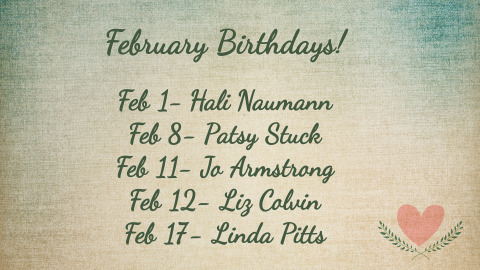 February Birthdays!
Feb 1- Hali Naumann
Feb 8- Patsy Stuck
Feb 11- Jo Armstrong
Feb 12- Liz Colvin
Feb 17- Linda Pitts